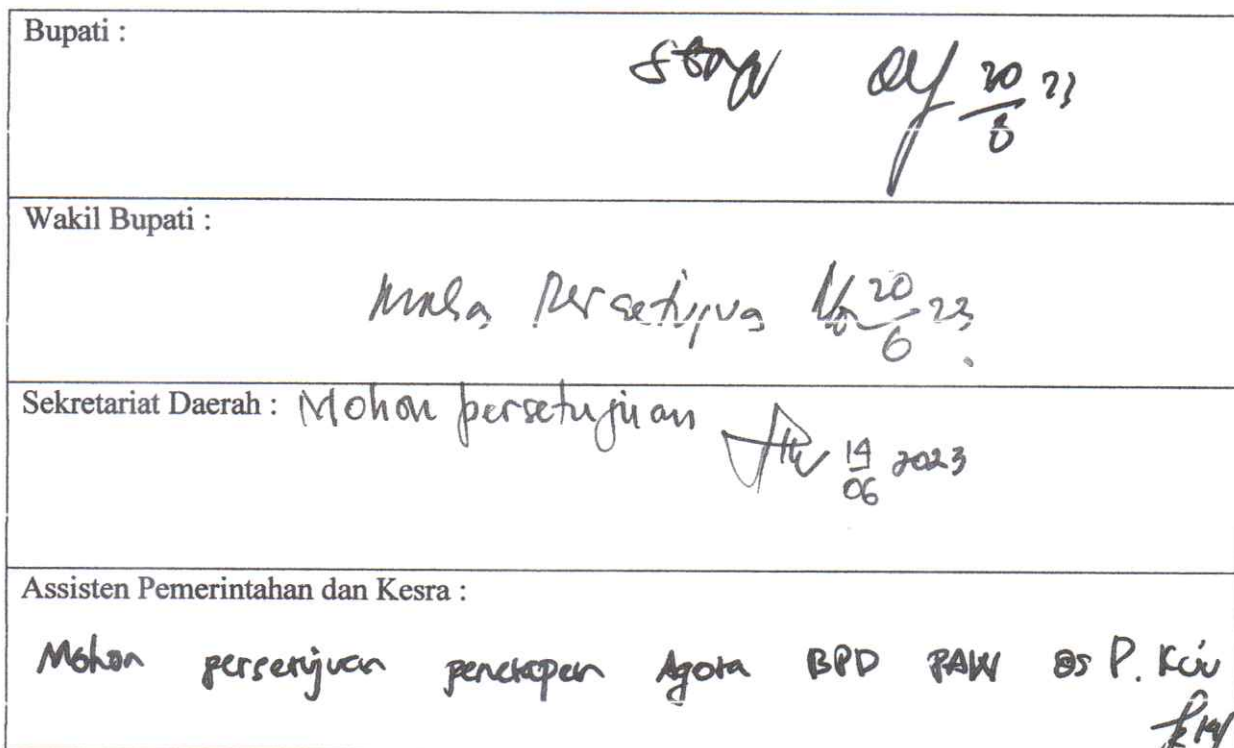 Bupati :
20/6 23
Wakil Bupati :
20/6 23
Sekretariat Daerah : Mohon persetujuan
19/06 2023
Assisten Pemerintahan dan Kesra :
Mohon persetujuan penetapan Agota BPD PAW Ds P.